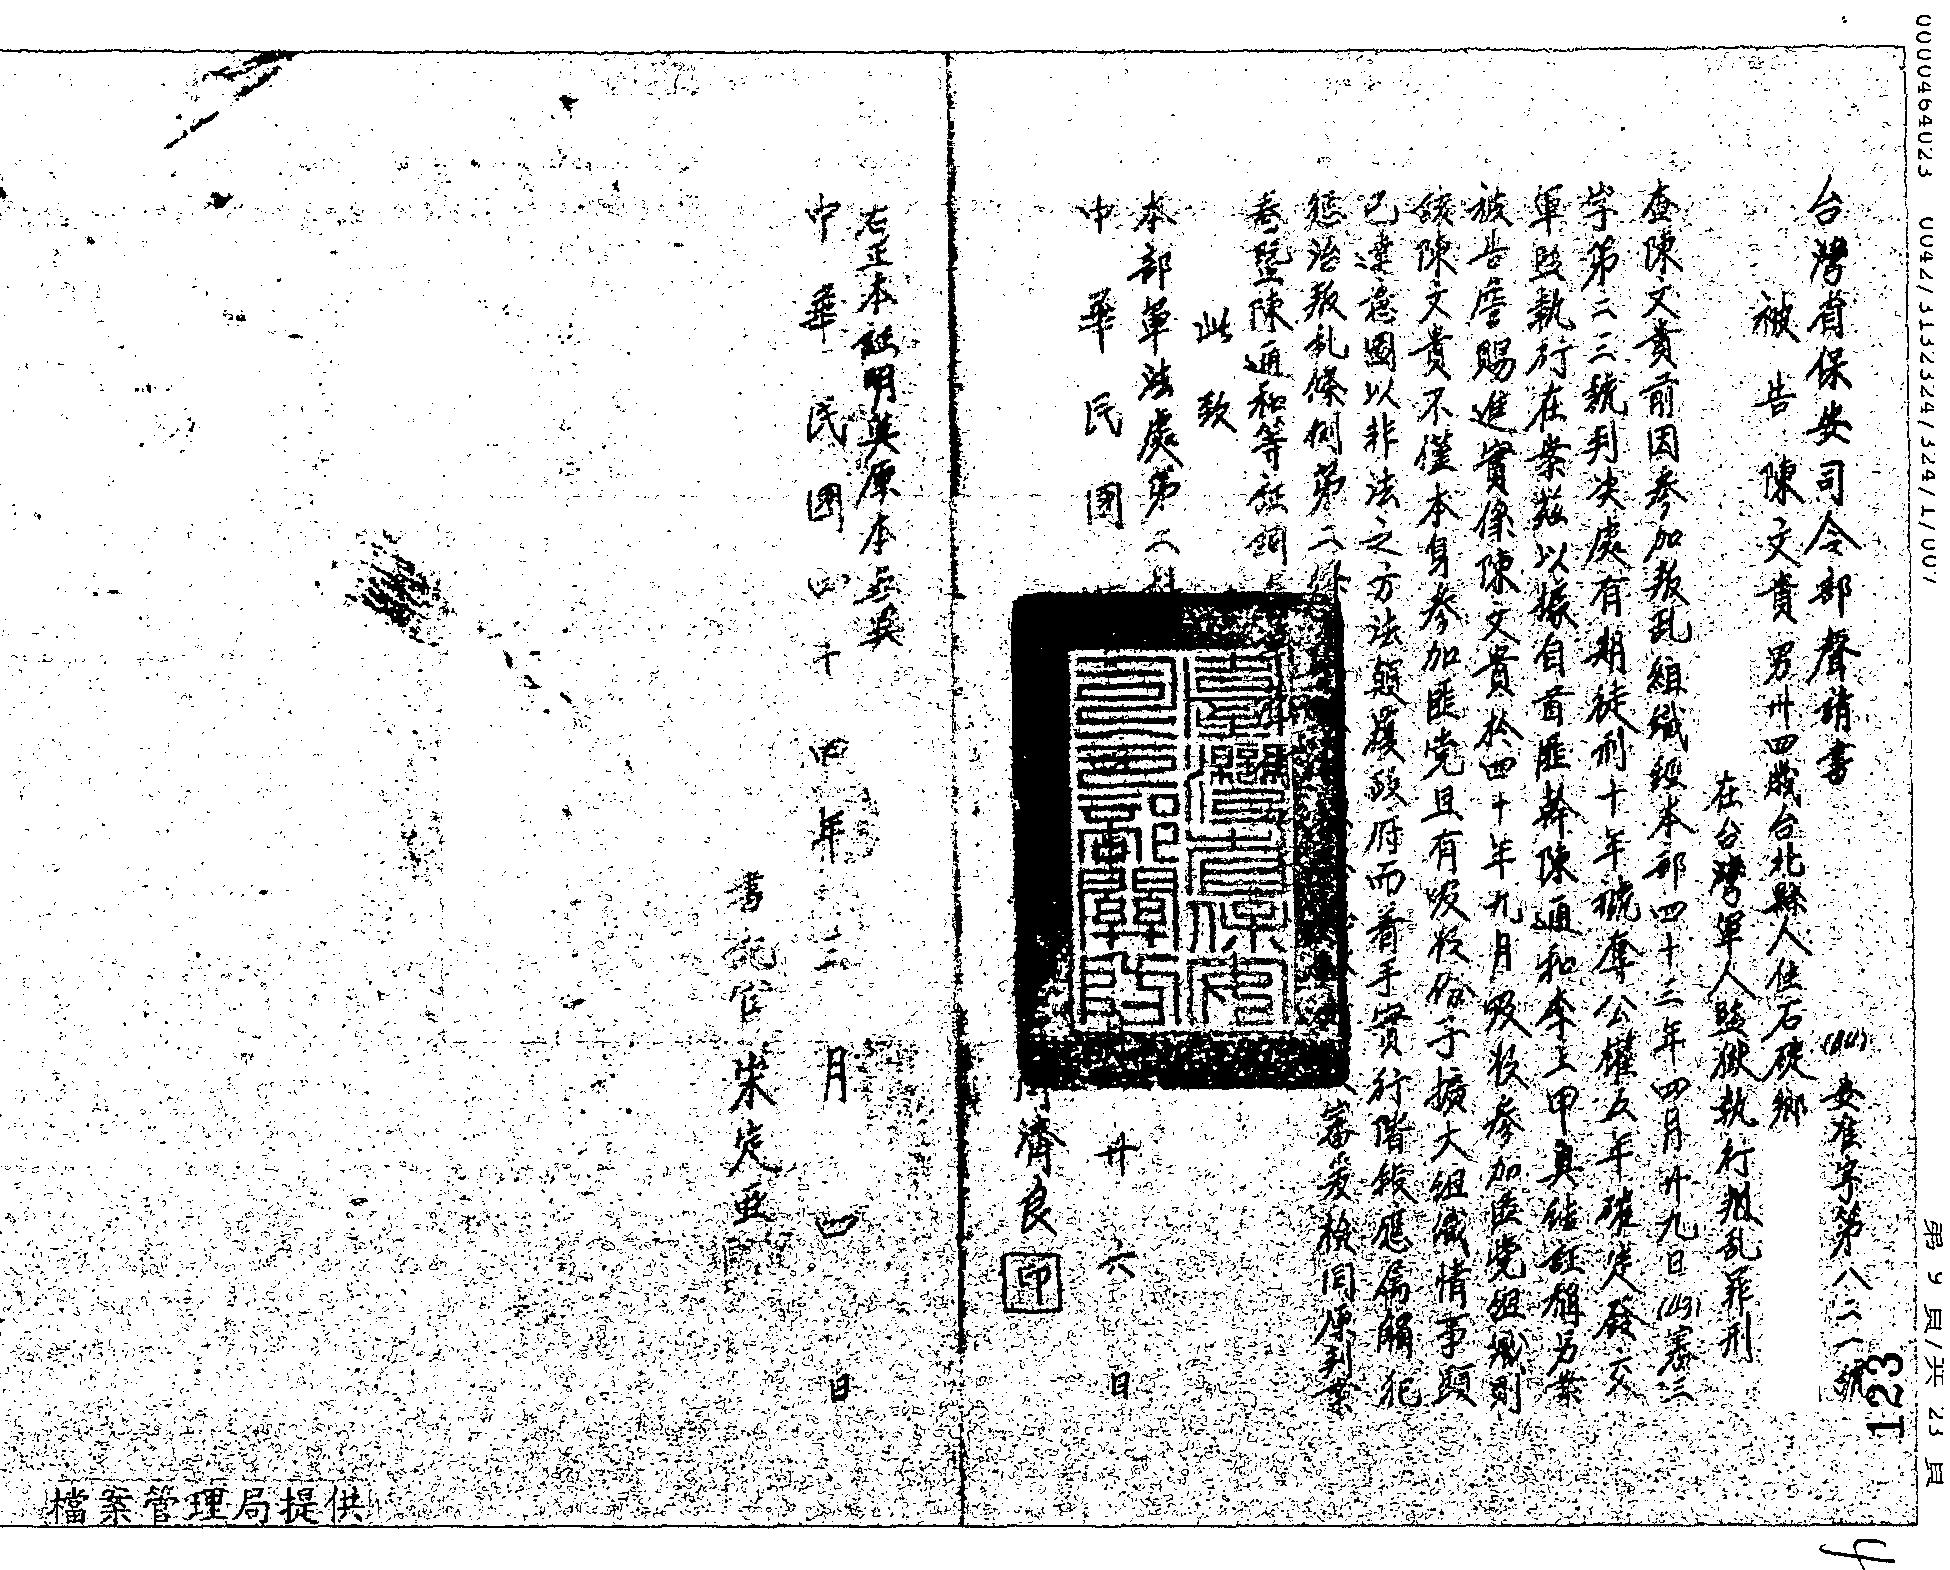 0000464023 0042/3132324/324/1/001
第 9 頁/共 23 頁
123
台灣省保安司令部聲請書
(44)安准字第八二一號
被告陳文貴男卅四歲台北縣人住石碇鄉
在台灣軍人監獄執行叛乱罪刑
查陳文貴前因參加叛乱組織經本部四十三年四月廿九日(43)審三
字第二三號判决處有期徒刑十年褫奪公權五年確定發交
軍監執行在案茲以據自首匪幹陳通和李上甲具結証稱另案
被告詹賜進實係陳文貴於四十年九月吸收參加匪党組織則
該陳文貴不僅本身參加匪党且有吸收份子擴大組織情事顯
已達意圖以非法之方法顛覆政府而着手實行階段應属觸犯
惩治叛乱條例第二條
審爰檢同原判案
卷暨陳通和等証詞
此致
本部軍法處第二
中華民國
廿六日
周濟良 印
右正本証明與原本無異
中華民國四十四年三月四日
書記官朱定亜
檔案管理局提供